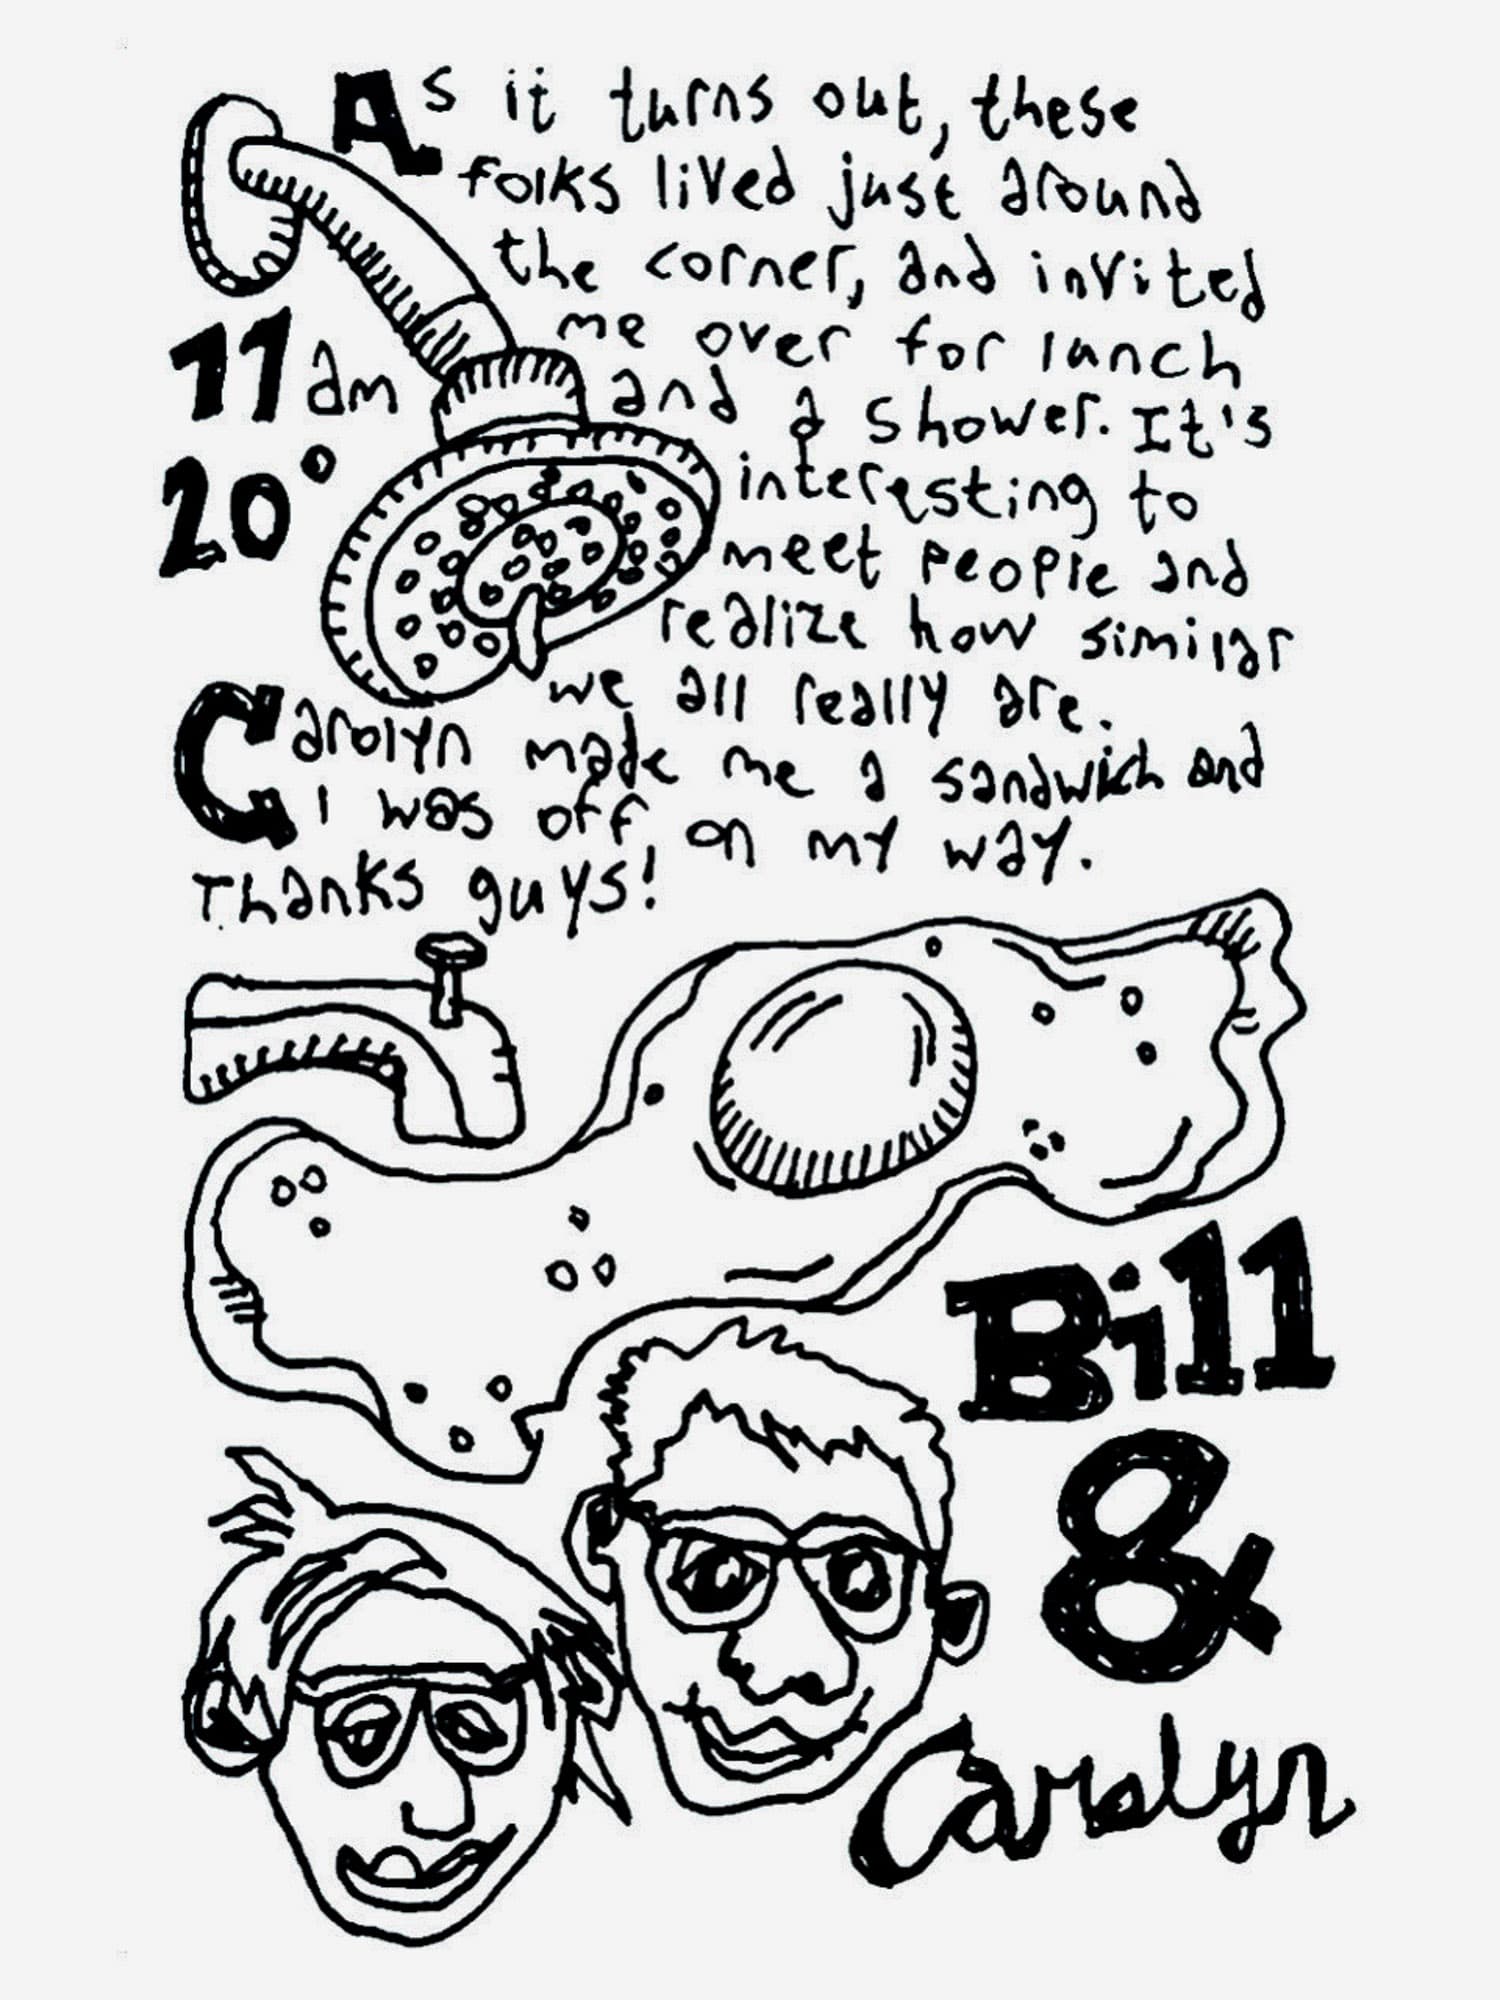 As it turns out, these
folks lived just around
the corner, and invited
me over for lunch
11am
and a shower. It's
20°
interesting to
meet people and
realize how similar
we all really are.
Carolyn made me a sandwich and
I was off on my way.
Thanks guys!
Bill
&
Carolyn